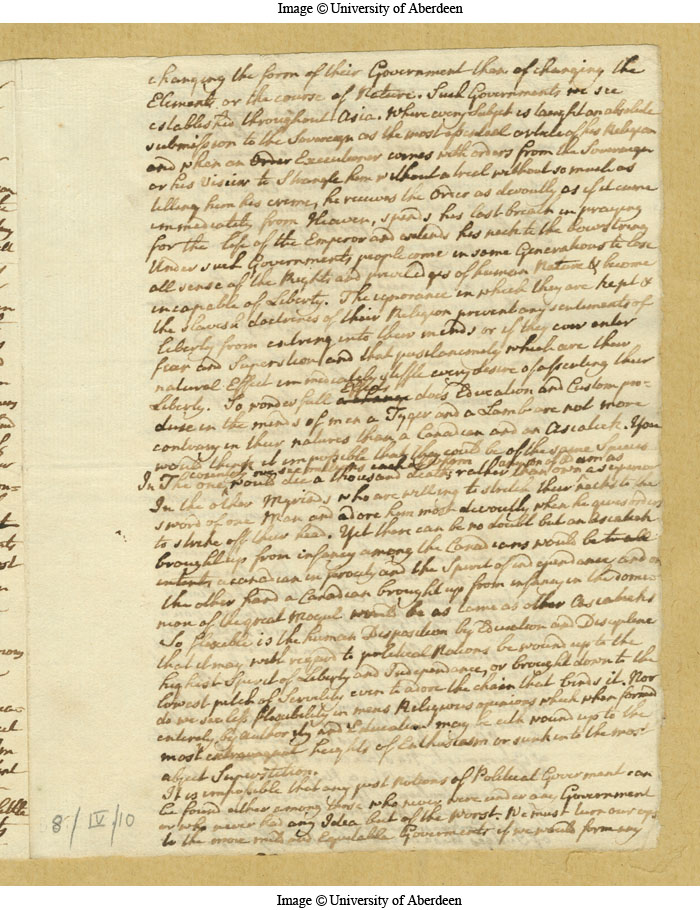 Image © University of Aberdeen
changing the form of their Government than of changing the
Elements or the course of Nature. Such Governments we see
established throughout Asia. Where every Subject is taught an absolute
submission to the Sovereign as the most essential article of his Religion
and when an Order Executioner comes with orders from the Sovereign
or his Visier to Strangle him without a trial without so much as
telling him his crime, he receives the Order as devoutly as if it came
immediately from Heaven, spends his last breath in praying
for the life of the Emperor and extends his neck to the bowstring
Under such Governments people come in some Generations to lose
all sense of the Rights and priviledges of human Nature & become
incapable of Liberty. The ignorance in which they are kept &
the Slavish doctrines of their Religion prevent any sentiments of
Liberty from entring into their minds or if they ever enter
fear and Superstition and that pusilanimity which are their
natural Effect immediately stifle every desire of asserting their
Effects
Liberty. So wonderfull a change does Education and Custom pro-
duce in the minds of men a Tyger and a Lamb are not more
contrary in their natures than a Canadian and an Asiatick. You
would think it impossible that they could be of the same Species
In The one would die a thousand deaths rather than own a superior
In the other Myriads who are willing to stretch their necks to the
sword of one Man and adore him most devoutly when he gives orders
to strike off their head. Yet there can be no doubt but an Asiatick
brought up from infancy among the Canadians would be to all
intents a Canadian in ferocity and the Spirit of independance, and on
the other hand a Canadian brought up from infancy in the domi-
nion of the great Mogul would be as tame as other Asiaticks
So flexible is the human Disposition by Education and Discipline
that it may with regard to political Notions be wound up to the
highest Spirit of Liberty and Independance, or brought down to the
lowest pitch of Servility even to adore the chain that binds it. Nor
do we see less flexibility in mens Religious opinions which when formed
entirely by authority and Education may be eith wound up to the
most extravagant heights of Enthusiasm or sunk into the most
abject Superstition.
It is impossible that any just Notions of Political Goverment can
be found either among those who never were under any Government
or who never had any Idea but of the worst. We must turn our eyes
to the more mild and Equitable Goverments if we would form any
8/IV/10
Image © University of Aberdeen